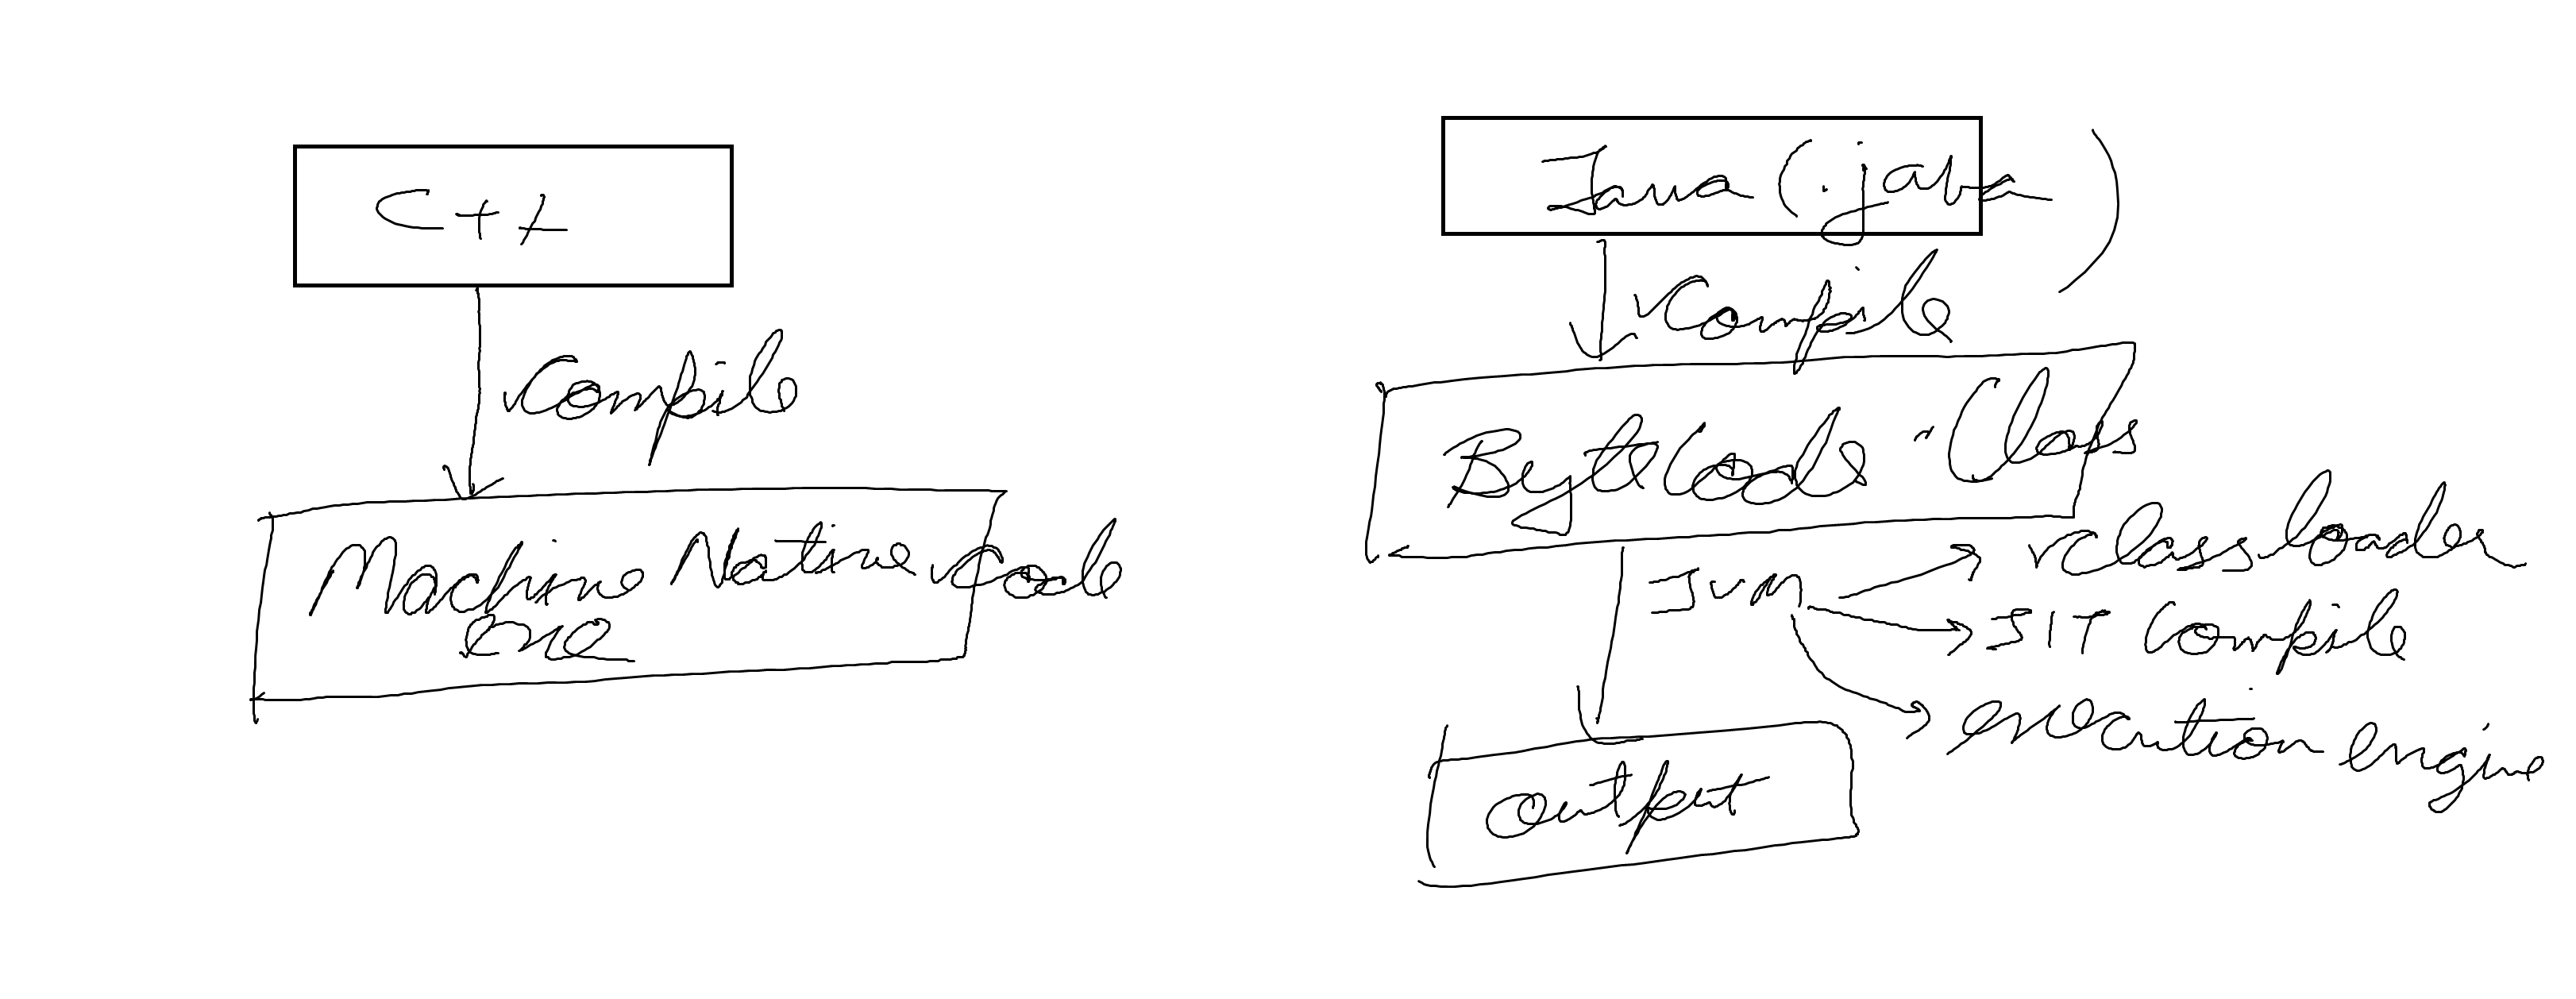 C++
Compile
Machine Native Code
exe
Java (.java)
Compile
ByteCode .Class
JVM
Class loader
JIT Compile
execution engine
output